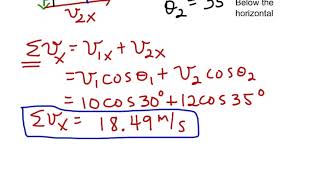 v₂ₓ
θ₂ = 35
Below the
horizontal
Σvₓ = v₁ₓ + v₂ₓ
= v₁cosθ₁ + v₂cosθ₂
= 10cos30° + 12cos35°
Σvₓ = 18.49 m/s